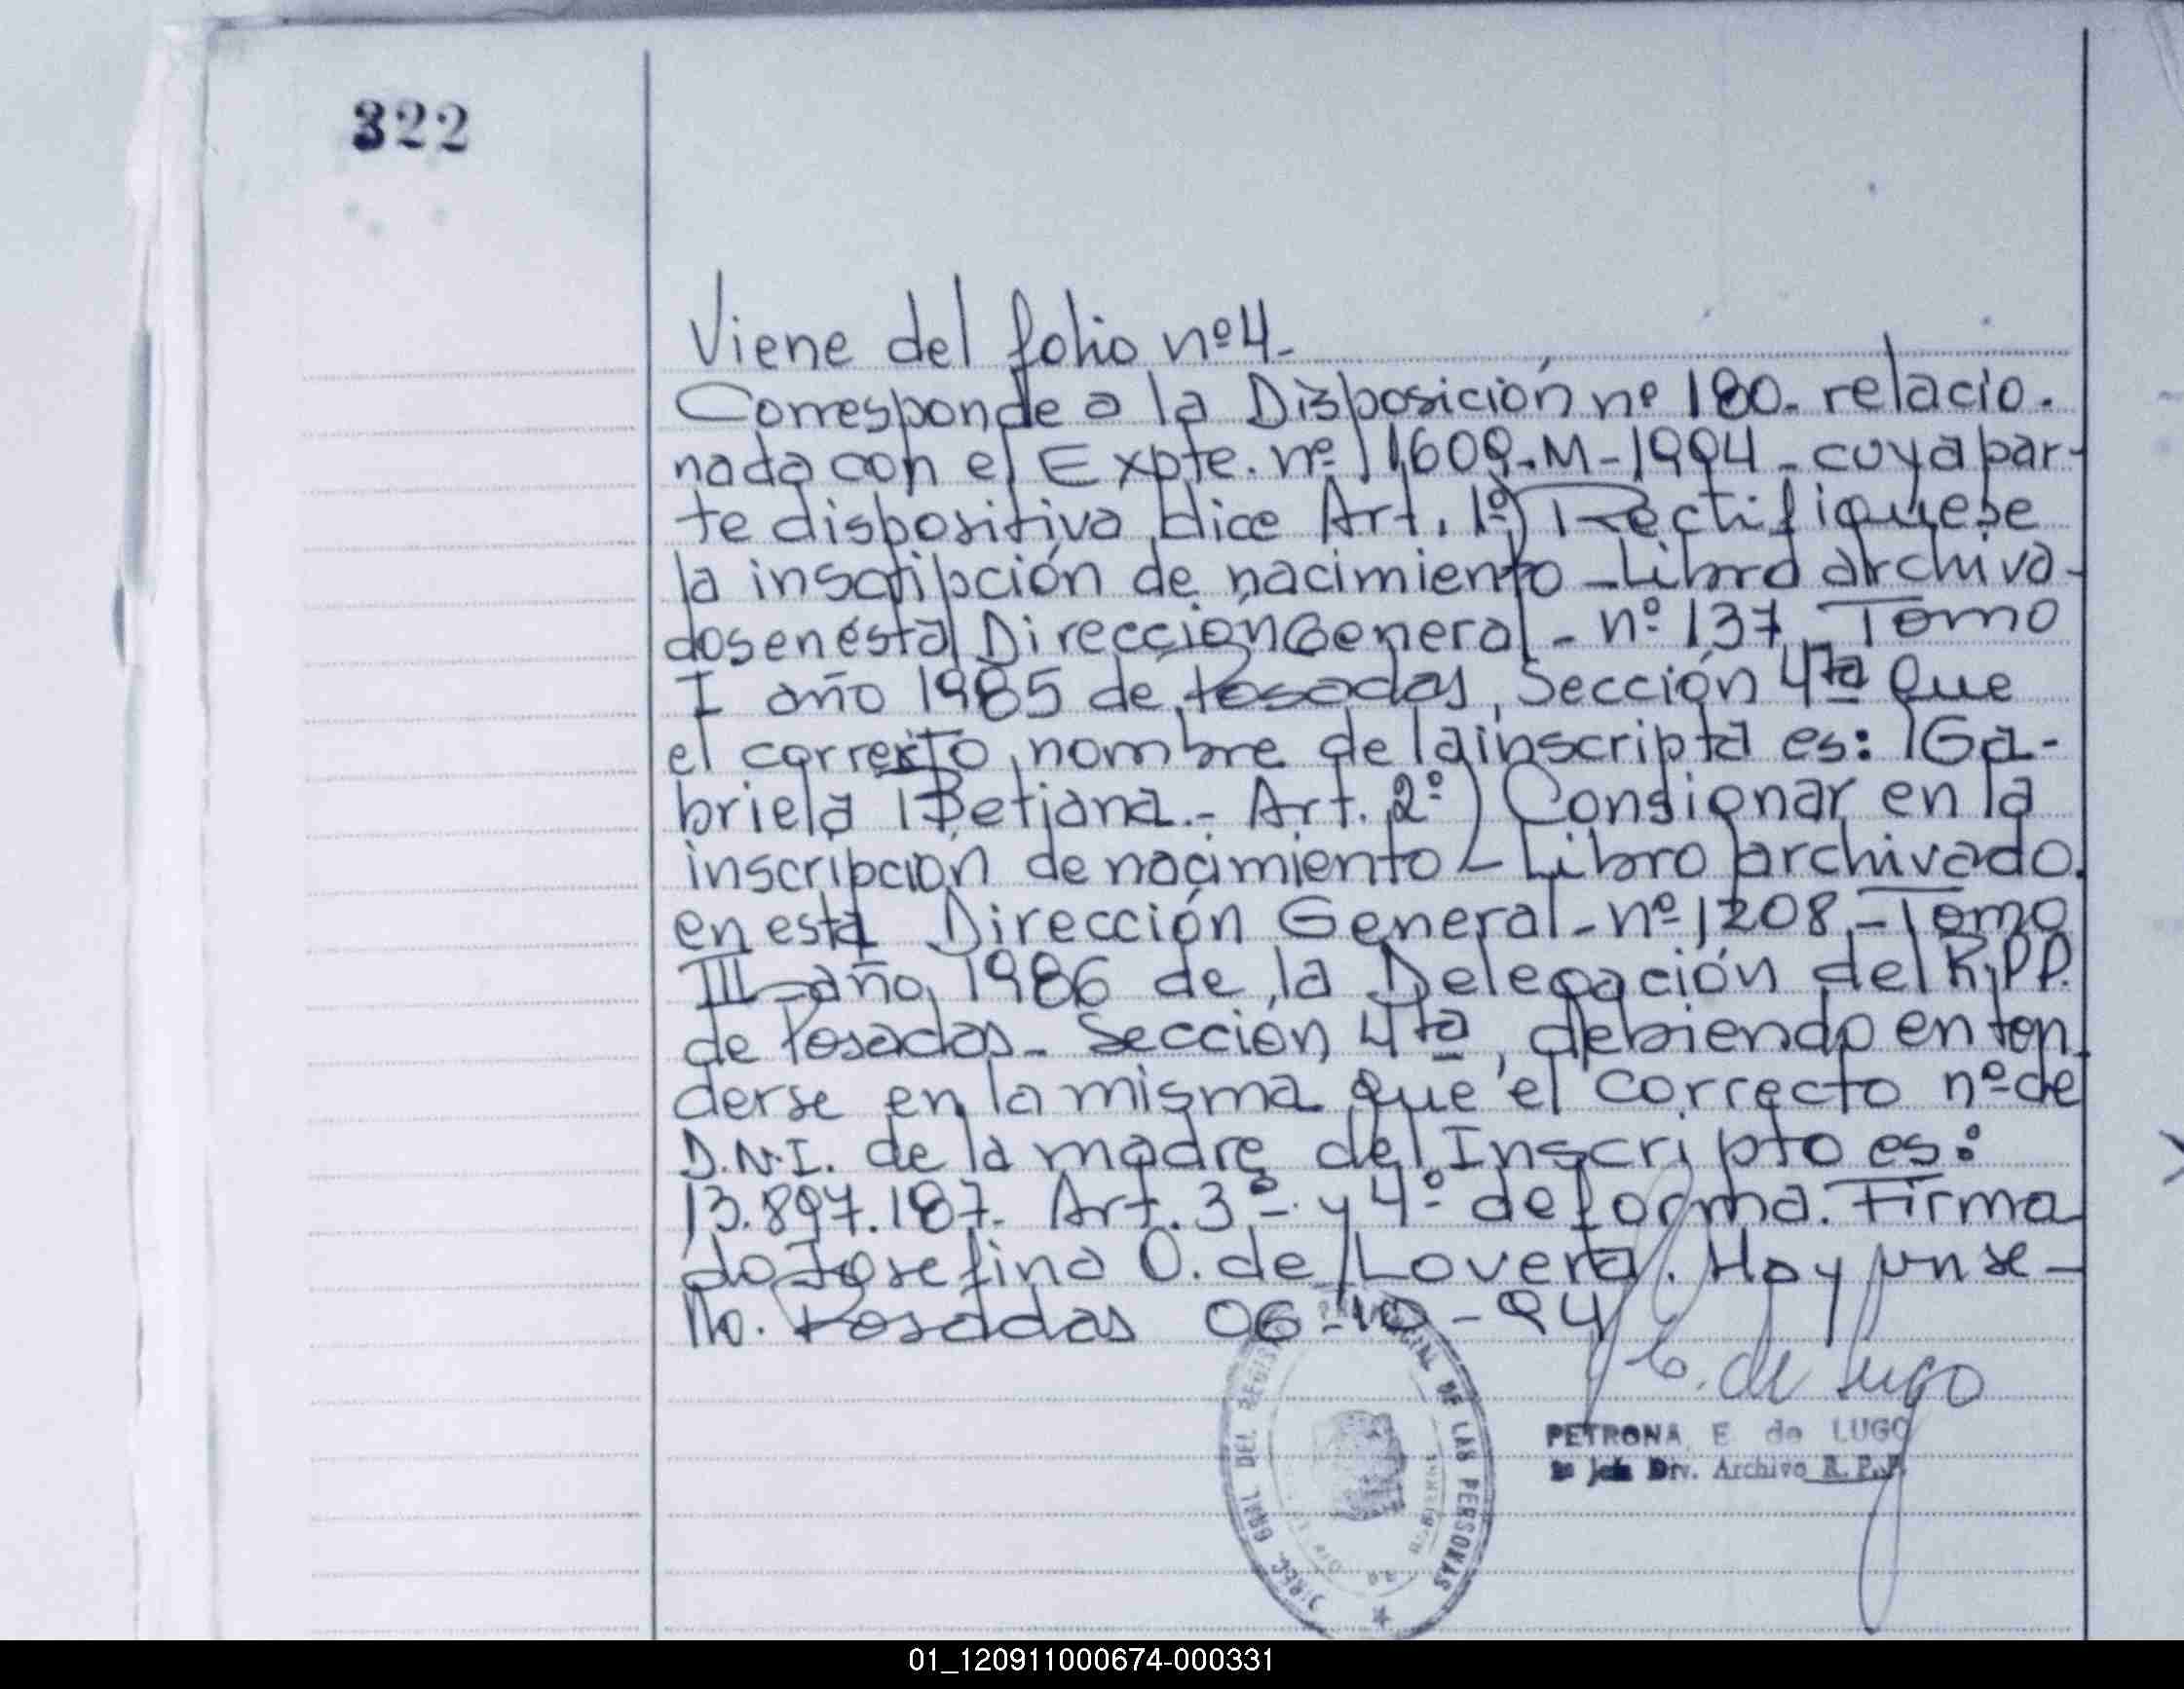 322
Viene del folio nº 4-
Corresponde a la Disposición nº 180- relacio-
nada con el Expte. nº 1609-M-1994- cuya par-
te dispositiva dice Art. 1º) Rectifiquese
la inscripción de nacimiento -Libro archiva-
dos en ésta Dirección General- nº 137 Tomo
I año 1985 de Posadas, Sección 4ta que
el correcto nombre de la inscripta es: Ga-
briela Betiana.- Art. 2º) Consignar en la
inscripción de nacimiento - Libro archivado
en esta Dirección General- nº 1208- Tomo
III- año 1986 de la Delegación del R.P.P.
de Posadas- Sección 4ta, debiendo enten
derse en la misma que el correcto nº de
D.N.I. de la madre del Inscripto es:
13.897.187- Art. 3º y 4º de forma. Firma
do Josefina O. de Lovera. Hay un se-
llo. Posadas 06-10-94
E. de Lugo
PETRONA E de LUGO
Drv. Archivo R.P.P.
DIREC. GRAL DEL REGISTRO PROVINCIAL DE LAS PERSONAS
01_120911000674-000331